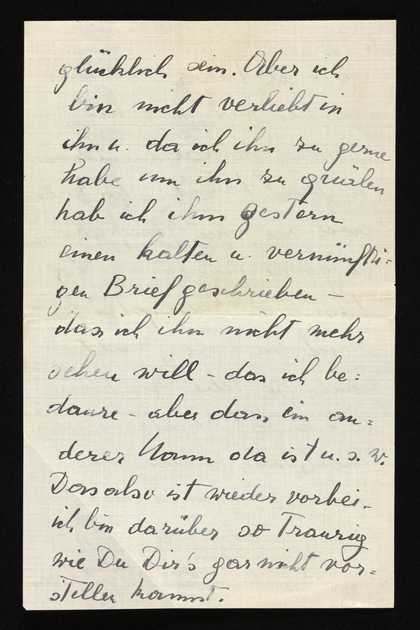 glücklich sein. Aber ich
bin nicht verliebt in
ihn u. da ich ihn zu gerne
habe um ihn zu quälen
hab ich ihm gestern
einen kalten u. vernünfti=
gen Brief geschrieben –
dass ich ihn nicht mehr
sehen will – das ich be=
daure – aber dass ein an=
derer Mann da ist u. s. w.
Das also ist wieder vorbei –
ich bin darüber so traurig
wie Du Dir's gar nicht vor=
stellen kannst.